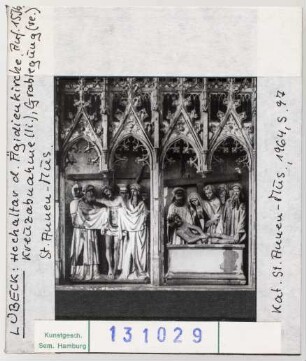 LÜBECK: Hochaltar d. Ägidienkirche, Auf. 1500
Kreuzabnahme (li.), Grablegung (re.)
St. Annen-Mus
Kat. St. Annen-Mus, 1964, S. 97
Kunstgesch.
Sem. Hamburg
131029